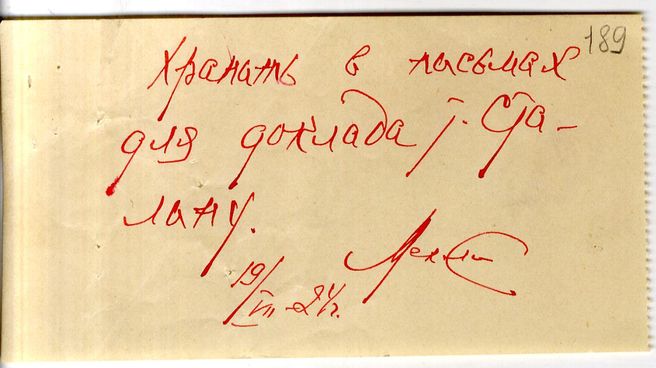 189
Хранить в письмах
для доклада т. Ста-
лину.
19/VII-24г.